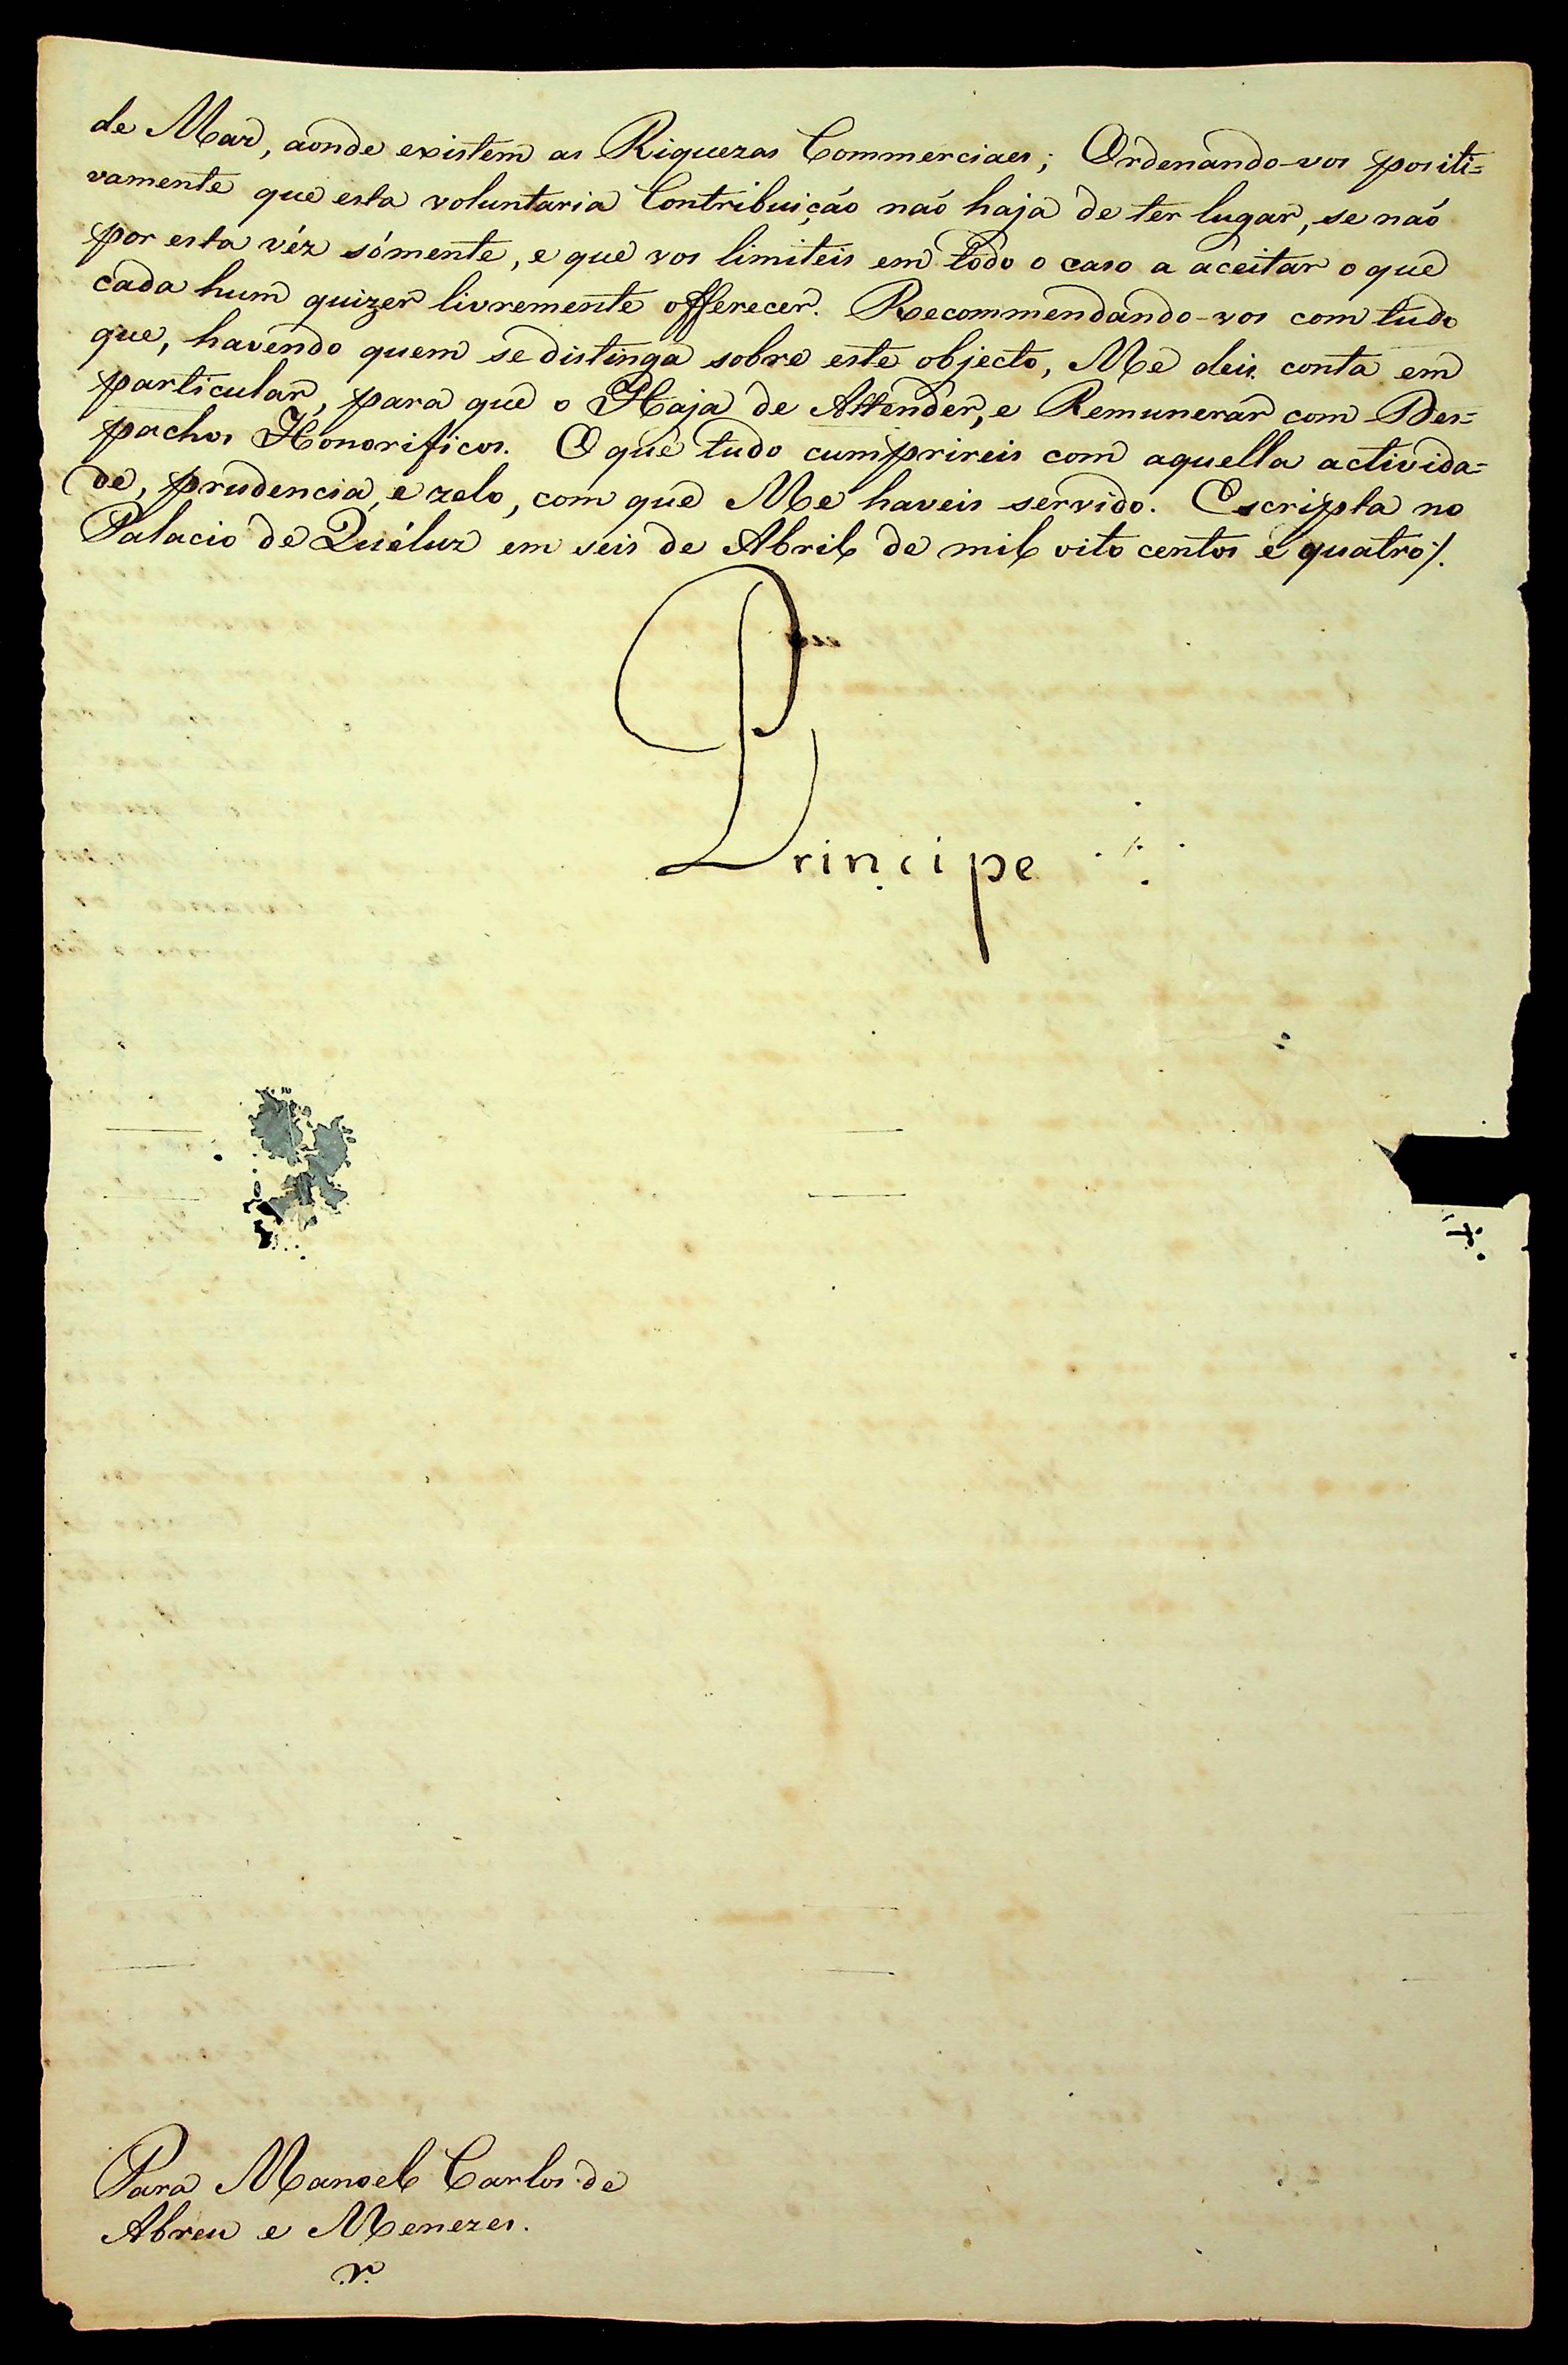 de Mar, aonde existem as Riquezas Commerciaes; Ordenando-vos positi=
vamente que esta voluntaria Contribuição não haja de ter lugar, se não
por esta véz sómente, e que vos limiteis em todo o caso a aceitar o que
cada hum quizer livremente offerecer. Recommendando-vos com tudo
que, havendo quem se distinga sobre este objecto, Me deis conta em
particular, para que o Haja de Attender, e Remunerar com Des=
pachos Honorificos. O que tudo cumprireis com aquella activida=
de, prudencia, e zelo, com que Me haveis servido. Escripta no
Palacio de Quéluz em seis de Abril de mil oito centos e quatro /.
Principe
Para Manoel Carlos de
Abreu e Menezes.